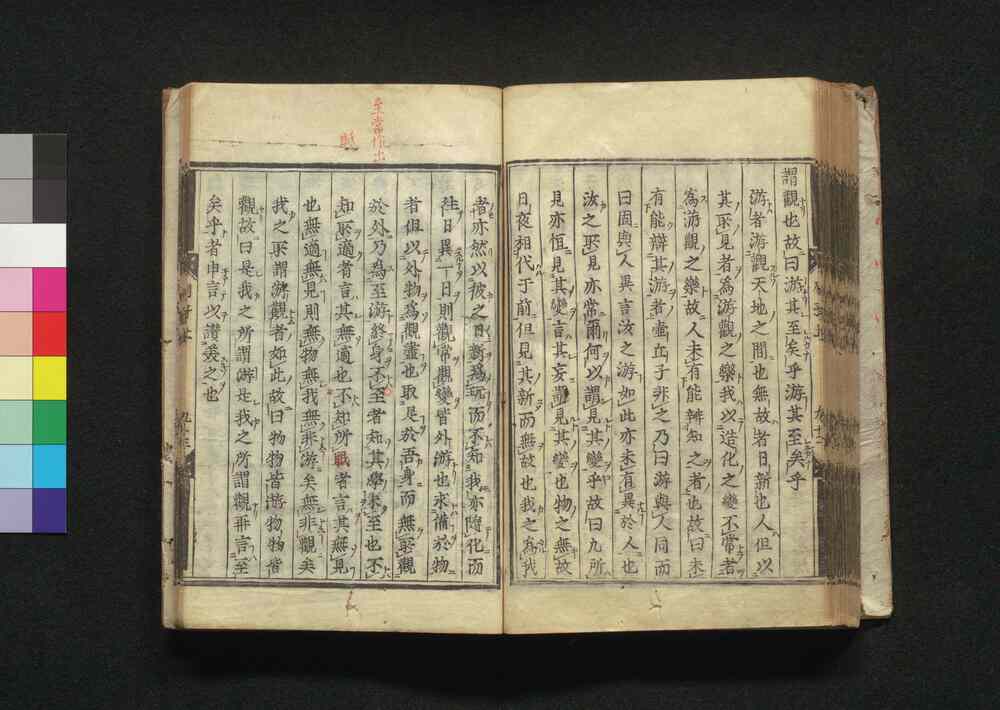 謂觀也故曰游其至矣乎游其至矣乎
游者游觀天地之間也無故者日新也人但以
其所見者為游觀之樂我以造化之變不常者
為游觀之樂故人未有能辨知之者也故曰未
有能辨其游者壺丘子非之乃曰游與人同而
曰固與人異言汝之游如此亦未有異於人也
汝之所見亦常爾何以謂見其變乎故曰凡所
見亦恒見其變言其妄謂見其變也物之無故
日夜相代于前但見其新而無故也我之為我
者亦然以彼之日新為玩而不知我亦隨化而
往日異一日則觀常觀變皆外游也求備於物
者俱以外物為觀盡也取足於吾身而無所觀
於外乃為至游終身不至者知其學未至也不
知所適者言其無適也不知所眂者言其無見
也無適無見則無物無我無非游矣無非觀矣
我之所謂游觀者如此故曰物物皆游物物皆
觀故曰是我之所謂游是我之所謂觀再言至
矣乎者申言以讚美之也
至當作出
眂